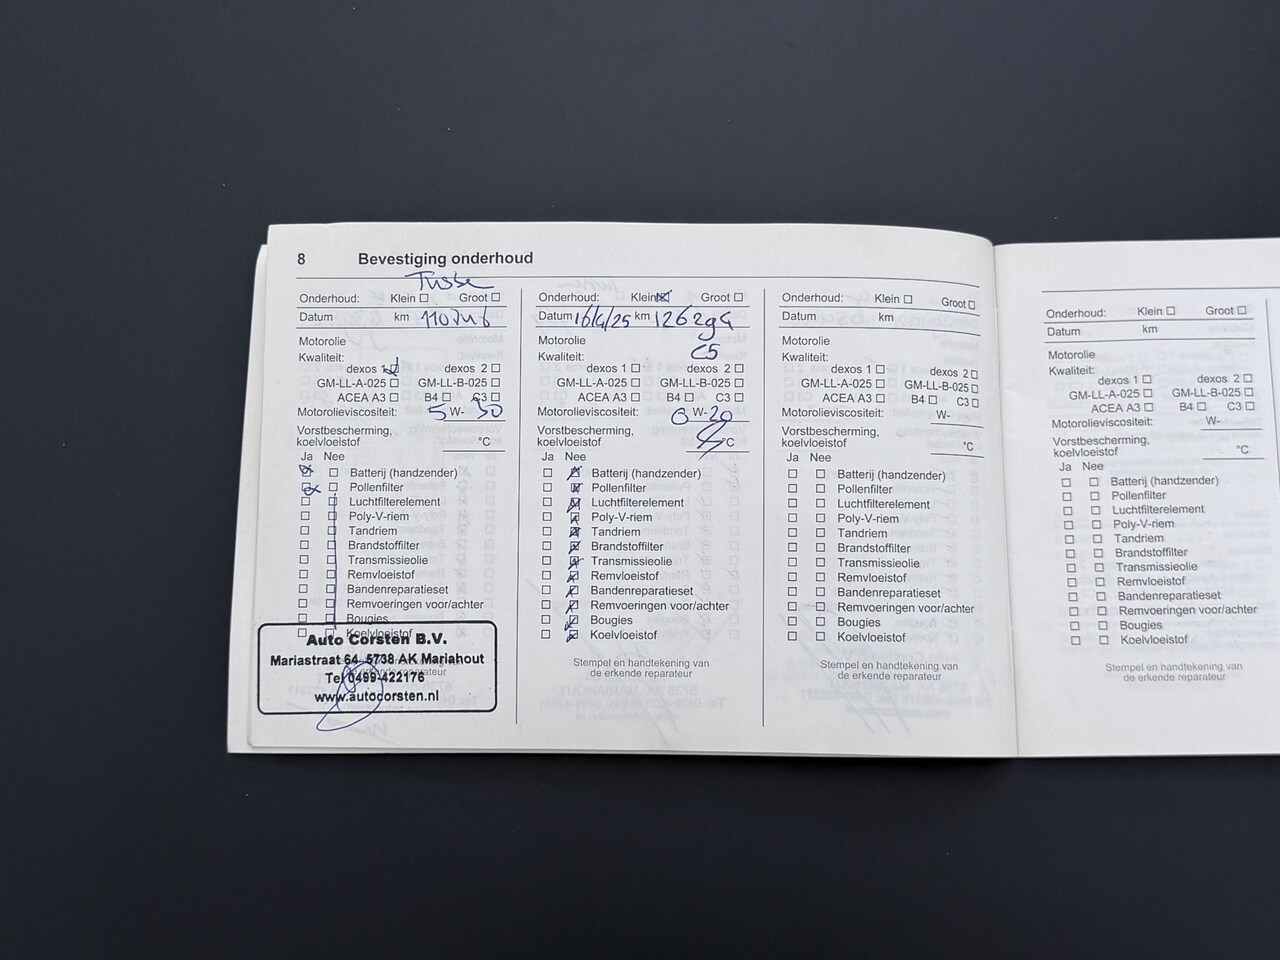 8 Bevestiging onderhoud
Tussen
Onderhoud: Klein Groot
Datum km
Motorolie
Kwaliteit:
dexos 1 dexos 2
GM-LL-A-025 GM-LL-B-025
ACEA A3 B4 C3
Motorolieviscositeit: 5 W- 30
Vorstbescherming,
koelvloeistof °C
Ja Nee
Batterij (handzender)
Pollenfilter
Luchtfilterelement
Poly-V-riem
Tandriem
Brandstoffilter
Transmissieolie
Remvloeistof
Bandenreparatieset
Remvoeringen voor/achter
Bougies
Koelvloeistof
Auto Corsten B.V.
Mariastraat 64 5738 AK Mariahout
Tel 0499-422176
www.autocorsten.nl
Onderhoud: Klein Groot
Datum 16/4/25 km 126294
Motorolie C5
Kwaliteit:
dexos 1 dexos 2
GM-LL-A-025 GM-LL-B-025
ACEA A3 B4 C3
Motorolieviscositeit: 0 W- 20
Vorstbescherming,
koelvloeistof °C
Ja Nee
Batterij (handzender)
Pollenfilter
Luchtfilterelement
Poly-V-riem
Tandriem
Brandstoffilter
Transmissieolie
Remvloeistof
Bandenreparatieset
Remvoeringen voor/achter
Bougies
Koelvloeistof
Stempel en handtekening van
de erkende reparateur
Onderhoud: Klein Groot
Datum km
Motorolie
Kwaliteit:
dexos 1 dexos 2
GM-LL-A-025 GM-LL-B-025
ACEA A3 B4 C3
Motorolieviscositeit: W-
Vorstbescherming,
koelvloeistof °C
Ja Nee
Batterij (handzender)
Pollenfilter
Luchtfilterelement
Poly-V-riem
Tandriem
Brandstoffilter
Transmissieolie
Remvloeistof
Bandenreparatieset
Remvoeringen voor/achter
Bougies
Koelvloeistof
Stempel en handtekening van
de erkende reparateur
Onderhoud: Klein Groot
Datum km
Motorolie
Kwaliteit:
dexos 1 dexos 2
GM-LL-A-025 GM-LL-B-025
ACEA A3 B4 C3
Motorolieviscositeit: W-
Vorstbescherming,
koelvloeistof °C
Ja Nee
Batterij (handzender)
Pollenfilter
Luchtfilterelement
Poly-V-riem
Tandriem
Brandstoffilter
Transmissieolie
Remvloeistof
Bandenreparatieset
Remvoeringen voor/achter
Bougies
Koelvloeistof
Stempel en handtekening van
de erkende reparateur